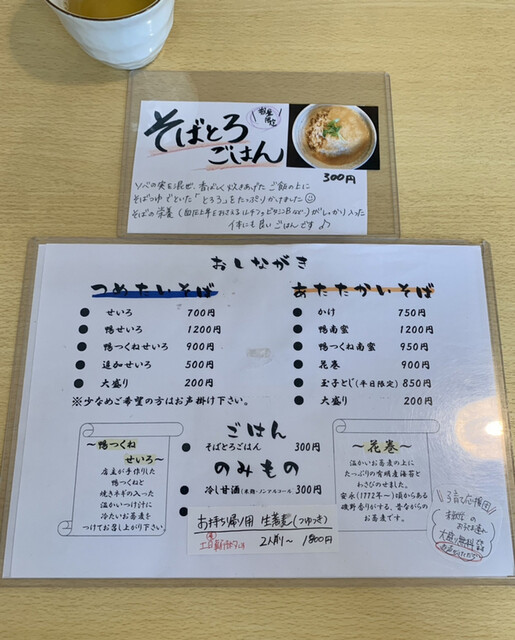 そばとろ
ごはん
数量
限定
300円
ソバの実を混ぜ、香ばしく炊きあげた ご飯の上に
そばつゆでといた「とろろ」をたっぷりかけました
そばの栄養(血圧上昇をおさえるルチンやビタミンBなど)がしっかり入った
体にも良い ごはんです♪
おしながき
つめたいそば
● せいろ 700円
● 鴨せいろ 1200円
● 鴨つくねせいろ 900円
● 追加せいろ 500円
● 大盛り 200円
※少なめご希望の方はお声掛け下さい。
あたたかいそば
● かけ 750円
● 鴨南蛮 1200円
● 鴨つくね南蛮 950円
● 花巻 900円
● 玉子とじ(平日限定) 850円
● 大盛り 200円
ごはん
● そばとろごはん 300円
のみもの
● 冷し甘酒(米麹・ノンアルコール) 300円
お持ち帰り用 生蕎麦(つゆつき)
2人前〜 1800円
〜鴨つくね
せいろ〜
店主が手作りした
鴨つくねと
焼きネギの入った
温かいつけ汁に
冷たいお蕎麦を
つけてお召し上がり下さい。
〜花巻〜
温かいお蕎麦の上に
たっぷりの有明産海苔と
わさびのせました。
安永(1772年〜)頃からある
磯野香りがする、昔ながらの
お蕎麦です。
子育て応援団
大盛り無料